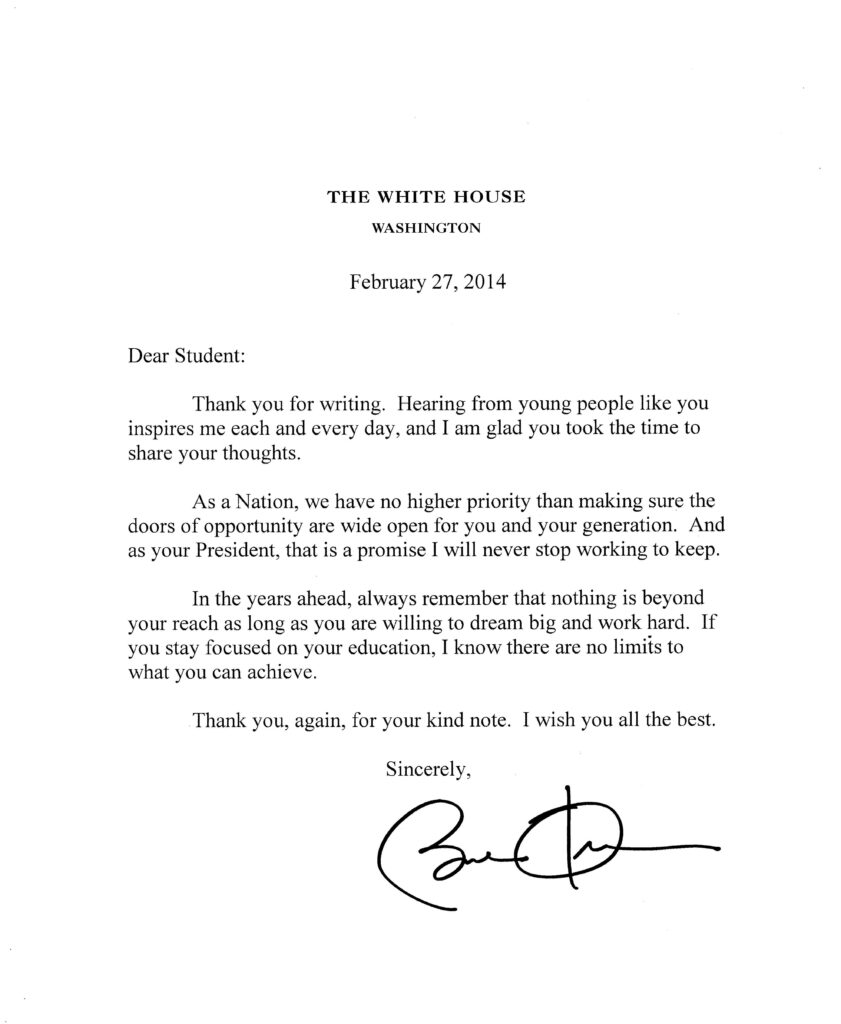 THE WHITE HOUSE
WASHINGTON
February 27, 2014
Dear Student:
Thank you for writing. Hearing from young people like you
inspires me each and every day, and I am glad you took the time to
share your thoughts.
As a Nation, we have no higher priority than making sure the
doors of opportunity are wide open for you and your generation. And
as your President, that is a promise I will never stop working to keep.
In the years ahead, always remember that nothing is beyond
your reach as long as you are willing to dream big and work hard. If
you stay focused on your education, I know there are no limits to
what you can achieve.
Thank you, again, for your kind note. I wish you all the best.
Sincerely,